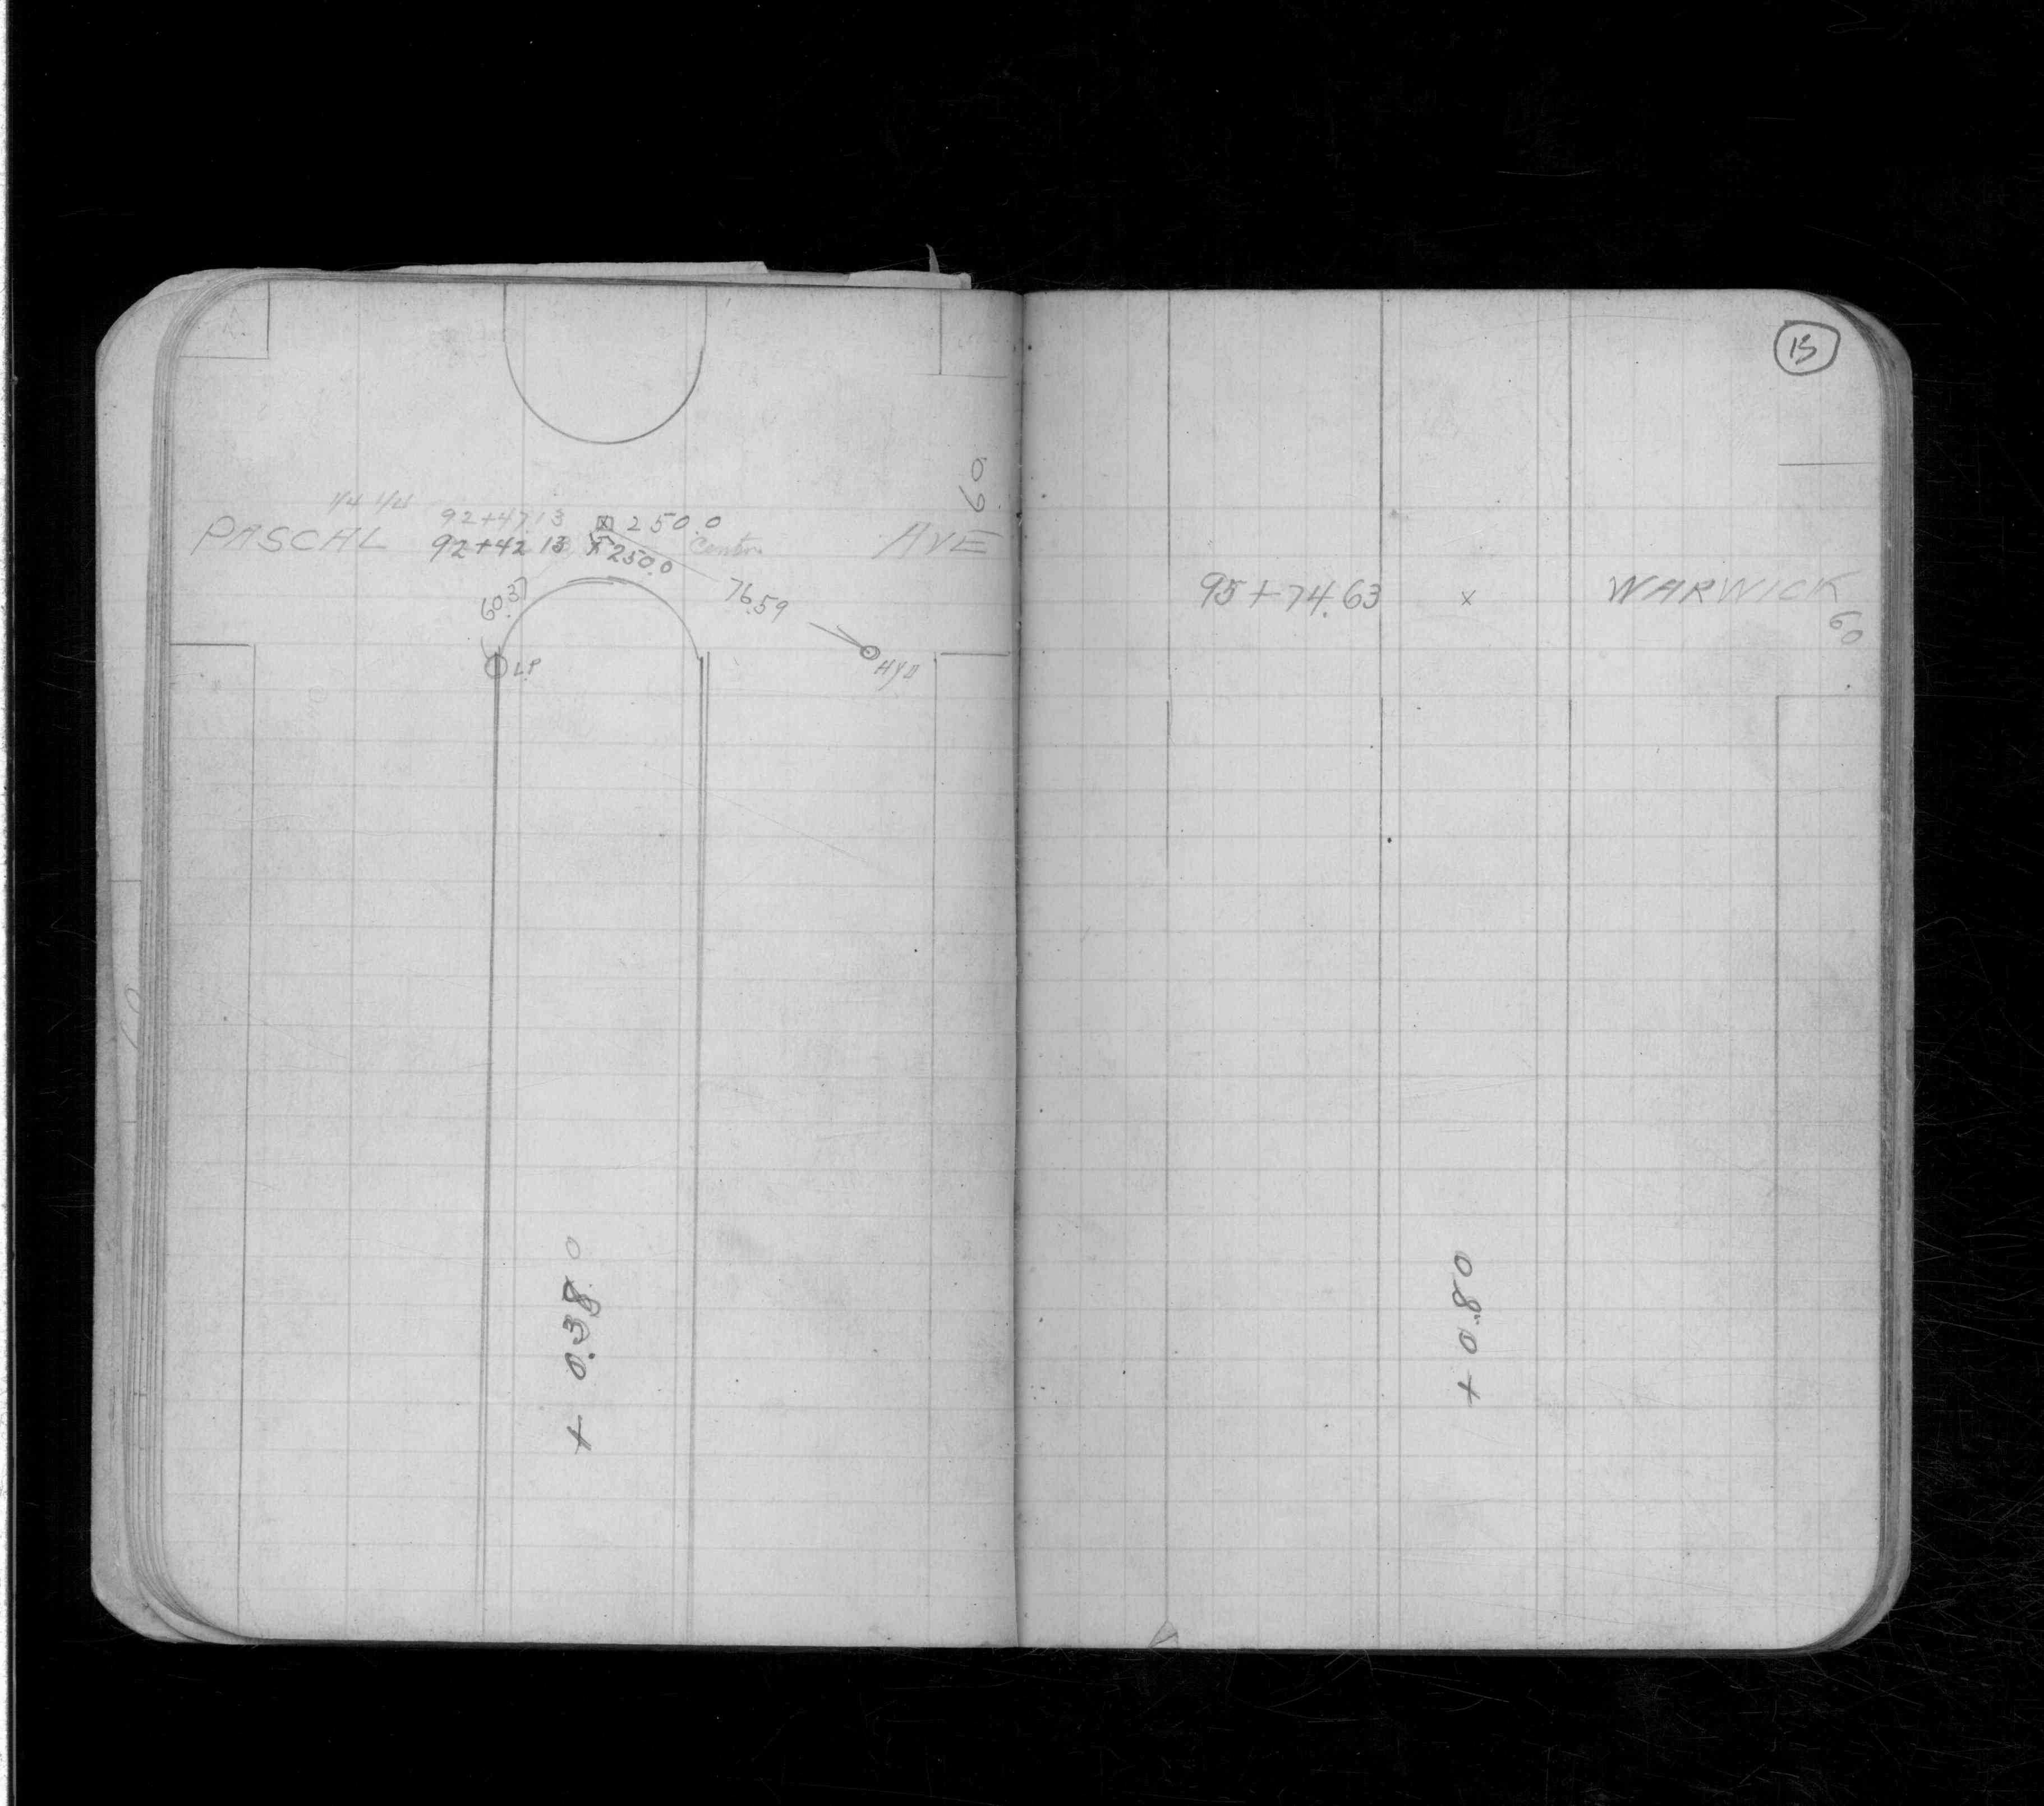 60
1/4 1/4 92+47.13 250.0
PASCAL 92+42.13 250.0 Centr. AVE
60.37 76.59
LP HYD
+ 0.380
15
95+74.63 x WARWICK
60
+ 0.80